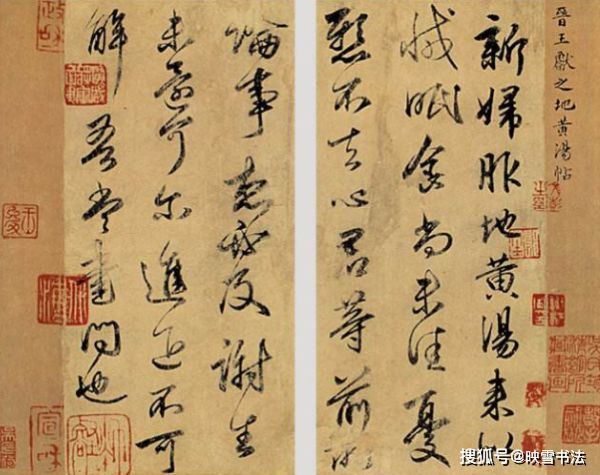 晉王獻之地黄湯帖
新婦服地黄湯来似
減眠食尚未佳憂
懸不去心君等前所
論事想必及謝生
未還可尔進退不可
解吾當書問也
政和
宣和
搜狐号@映雪书法